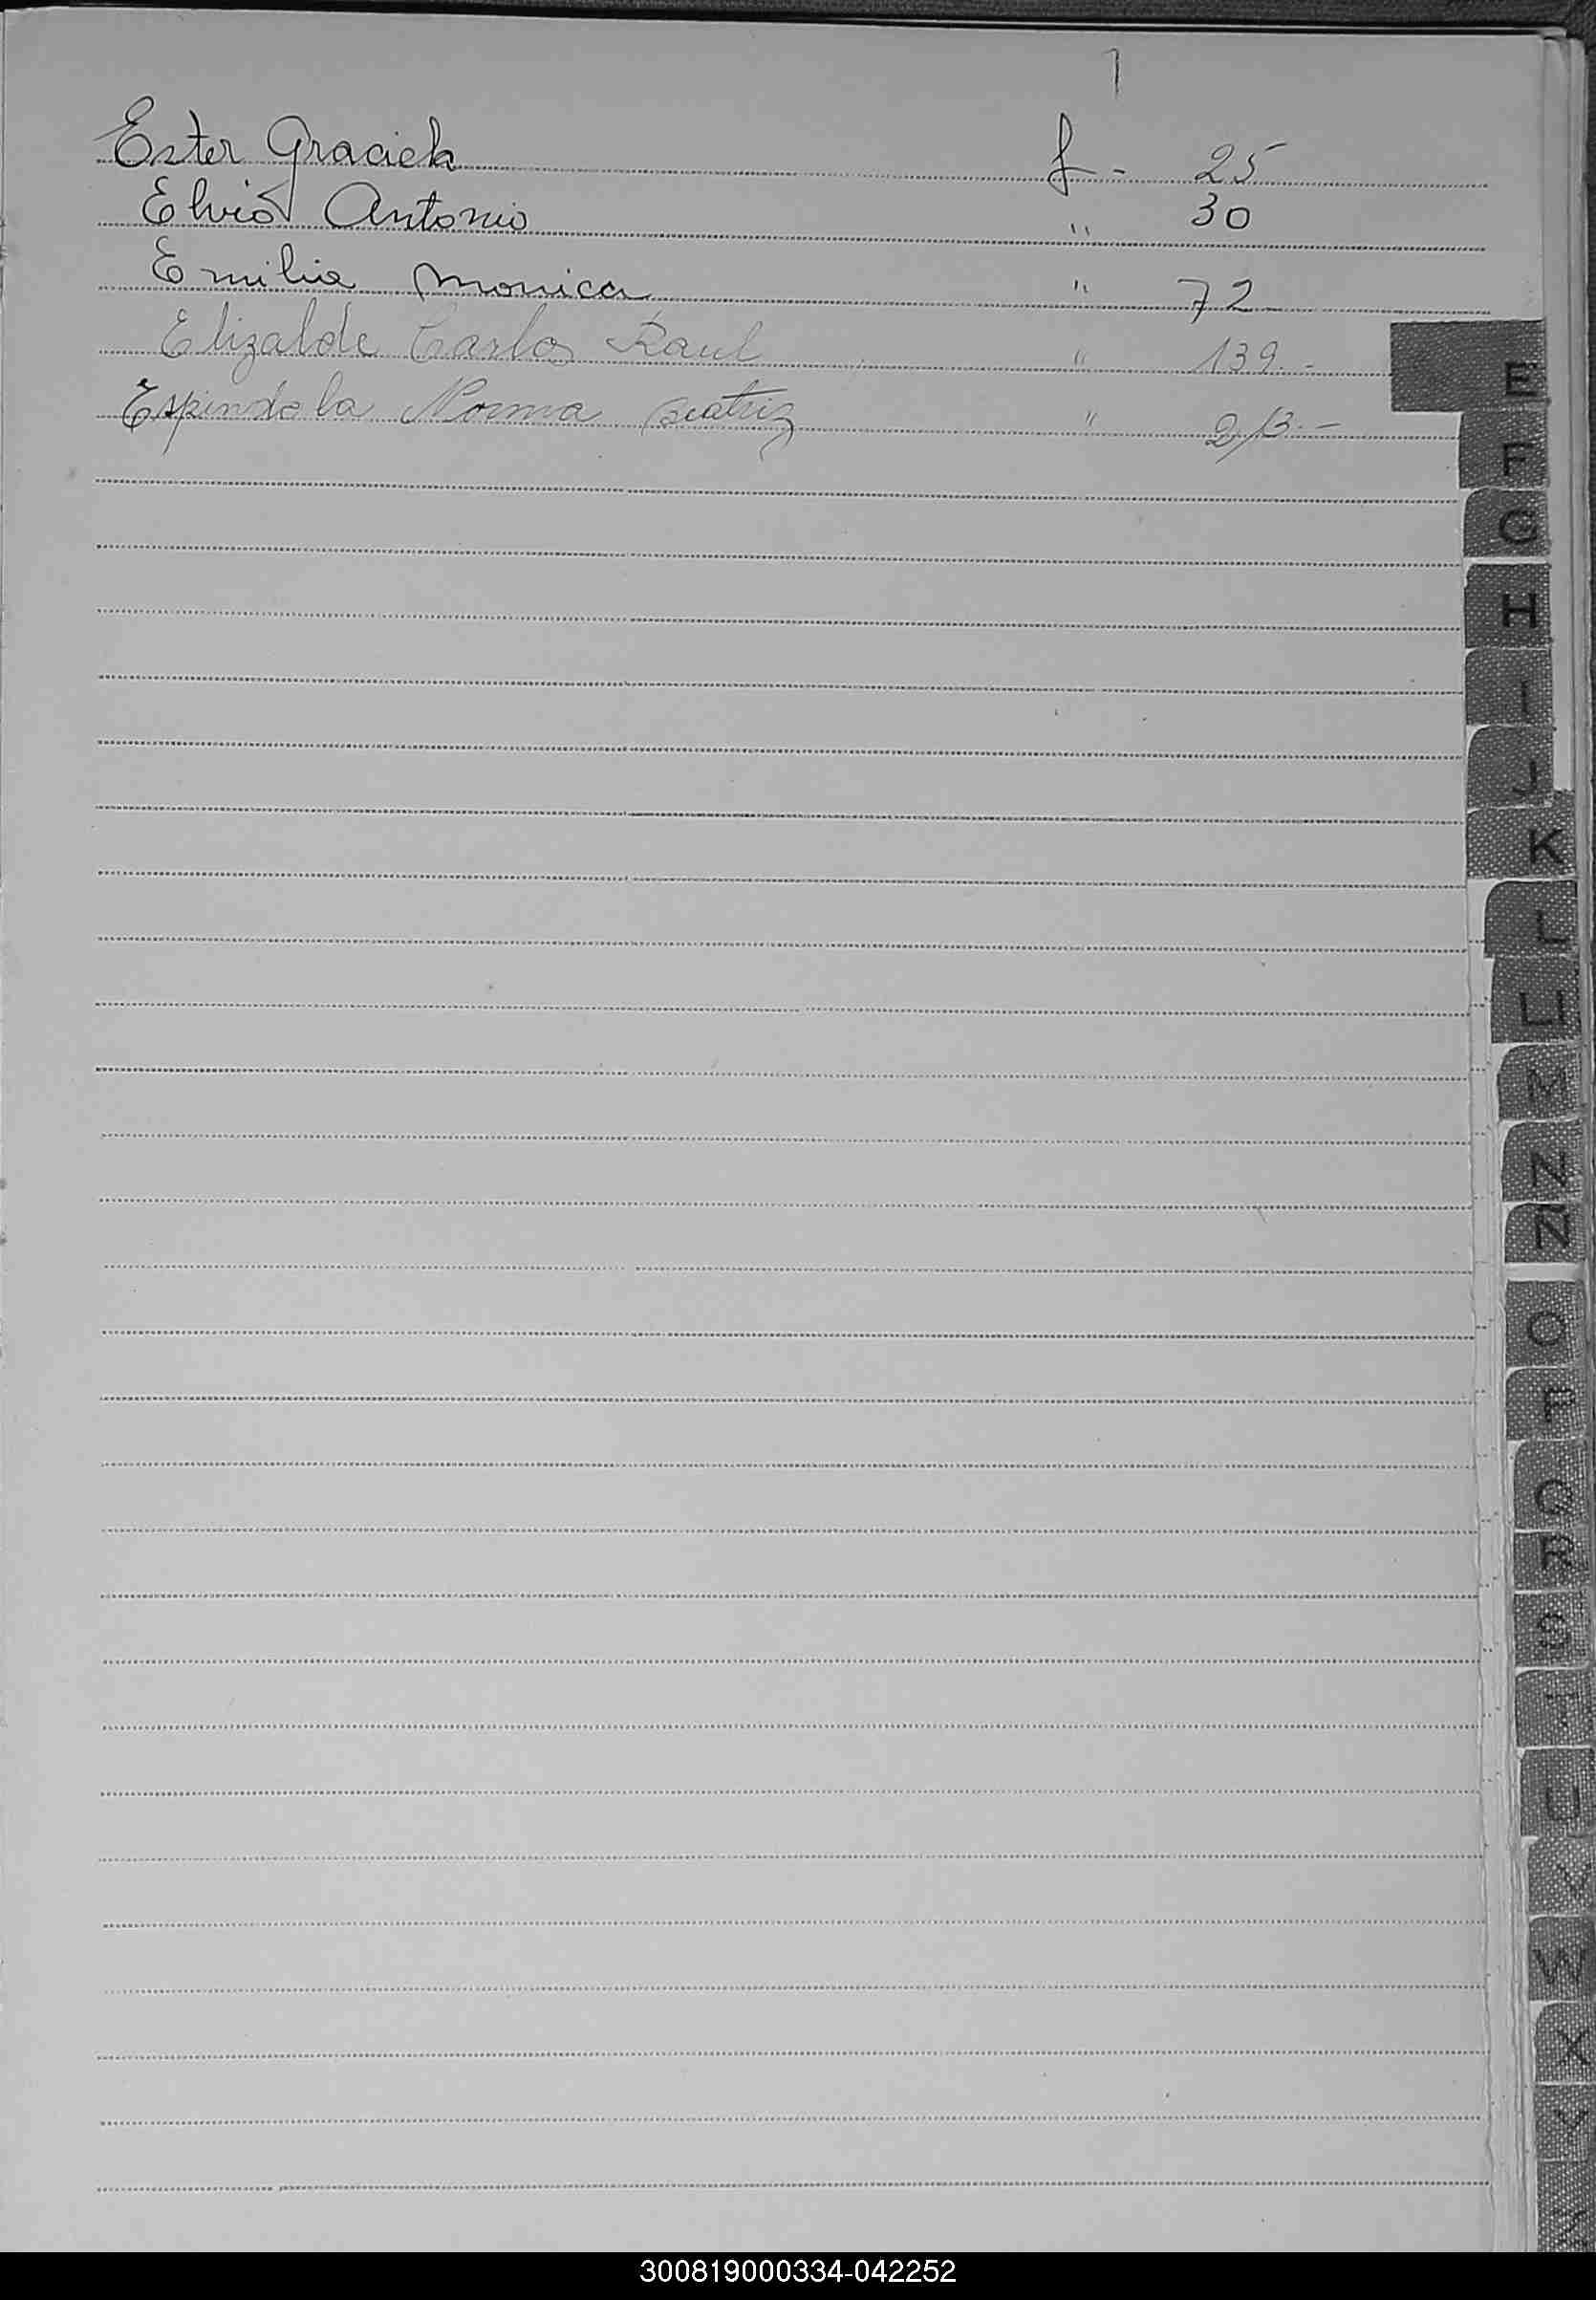 1
Ester Graciela f - 25
Elvio Antonio " 30
Emilia Monica " 72
Elizalde Carlos Raul " 139.-
Espindola Norma Beatriz " 213.-
E
F
G
H
I
J
K
L
LL
M
N
Ñ
O
P
Q
R
S
T
U
V
W
X
Y
Z
300819000334-042252